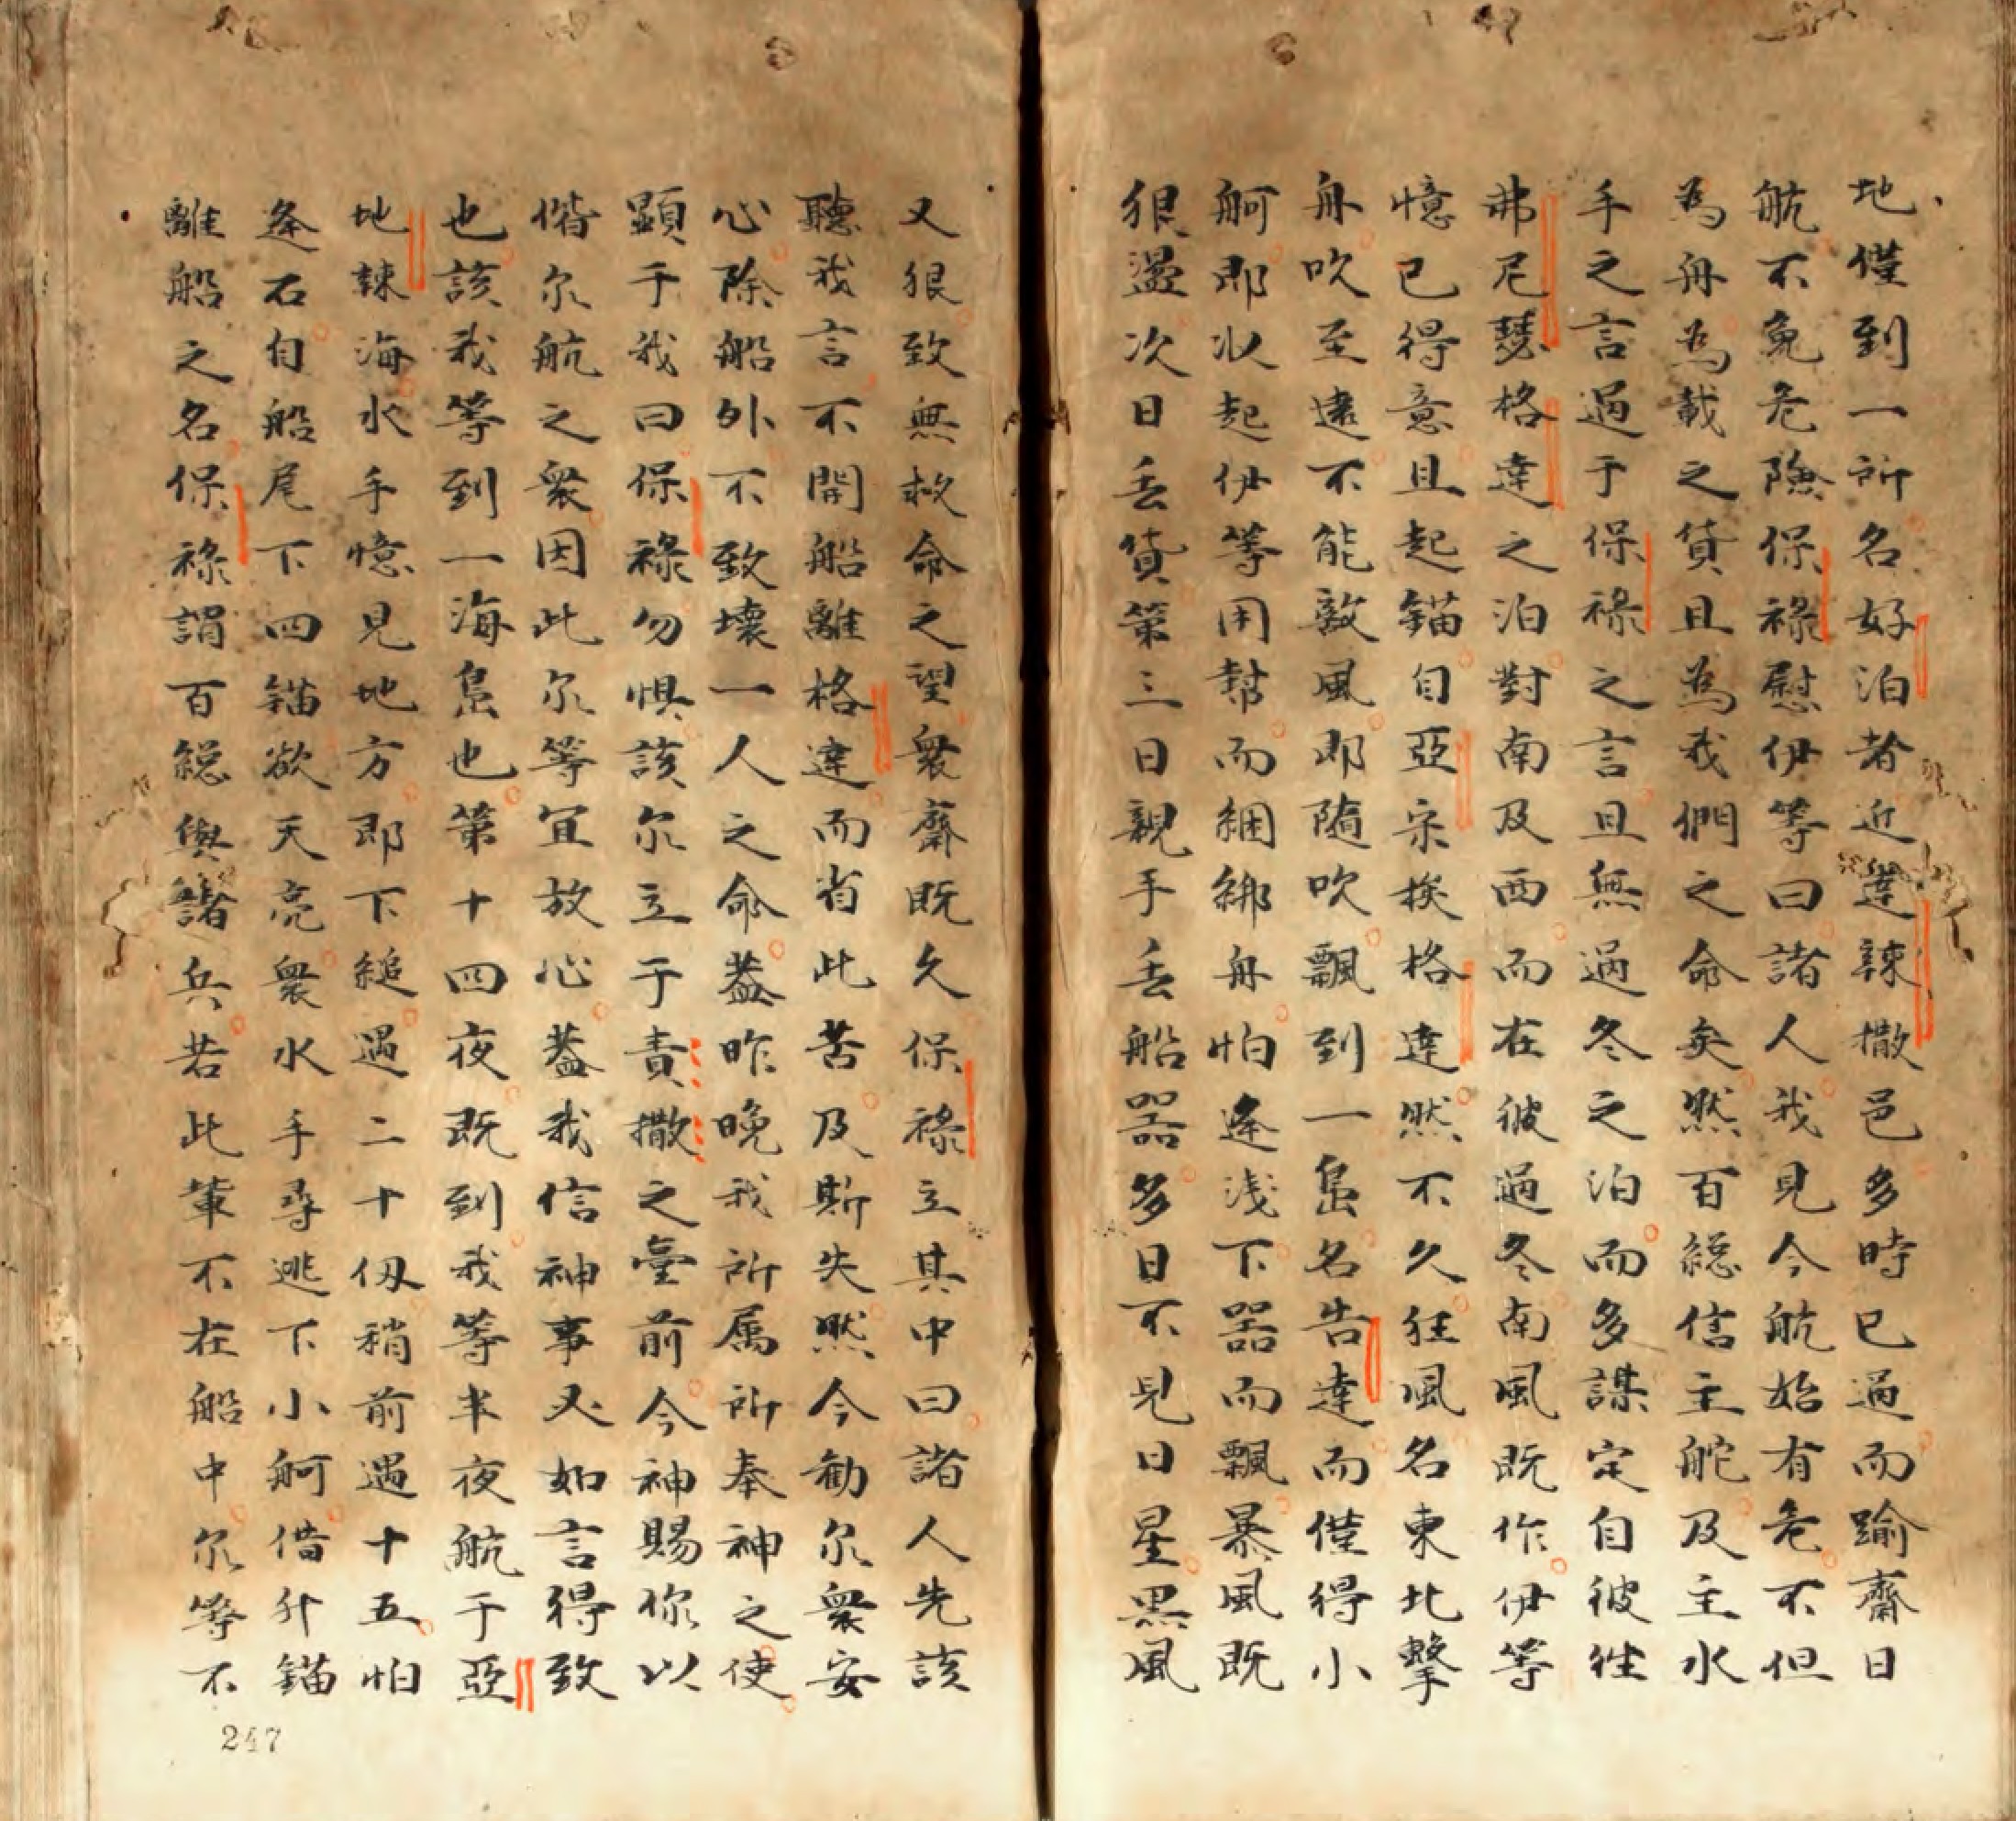 地僅到一所名好泊者近達辣撒邑多時已過而踰齋日
航不免危險保祿慰伊等曰諸人我見今航始有危不但
為舟為載之貨且為我們之命矣然百総信主舵及主水
手之言過于保祿之言且無過冬之泊而多謀定自彼往
弗尼瑟格達之泊對南及西而在彼過冬南風既作伊等
憶已得意且起錨自亞宗挨格達然不久狂風名東北擊
舟吹至遠不能敵風即隨吹飄到一島名告達而僅得小
舸即收起伊等用幫而綑綁舟怕逢淺下器而飄暴風既
狠盪次日丢貨第三日親手丢船器多日不見日星黑風
又狠致無救命之望衆齋既久保祿立其中曰諸人先該
聽我言不開船離格達而省此苦及斯失然今勸尔衆安
心除船外不致壞一人之命葢昨晚我所属所奉神之使
顕于我曰保祿勿惧該尔立于責撒之臺前今神賜你以
偕尔航之衆因此尔等宜放心葢我信神事必如言得致
也該我等到一海島也第十四夜既到我等半夜航于亞
地辣海水手憶見地方即下縋遇二十仭稍前遇十五怕
逢石自船尾下四錨欲天亮衆水手尋逃下小舸借升錨
離船之名保祿謂百総與諸兵若此輩不在船中尔等不
247